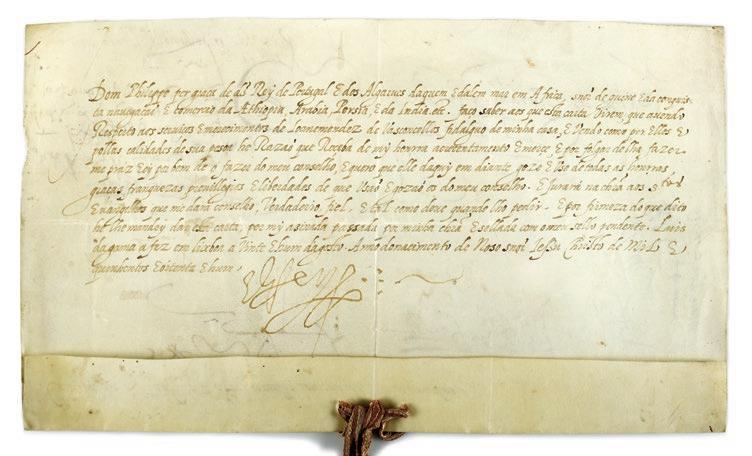 Dom Philippe per graca de ds Rey de Portugal E dos Algarues daquem E dalem mar em Africa, snor de guine E da conquis-
ta nauegacaõ E comercio da Æthiopia, Arabia, Persia, E da India. etc. faço saber aos que esta carta virem que auendo
Respeito aos seruicos E merecimentos de Joanemendez de Vasconcellos fidalguo de minha casa, E Vendo como por Elles E
pollas calidades de sua pesoa he Razaõ que Receba de my honrra acrecentamento E merce E por folgar de lha fazer
me praz Ey por bem de o fazer do meu conselho, E quero que elle daquy em diante goze E use de todas as honrras
graças franquezas priuillegios E liberdades de que Vsaõ E gozaõ os do meu conselho. E Jurara na chrã aos stos
Euangelhos que me dara conselho, Verdadeiro, fiel, E tal como deue quando lho pedir. E por firmeza do que dito
he lhe mandey dar esta carta, por my asinada passada por minha chrã E sellada com o meu sello pendente. Luis
da gama a fez em lixboa a Vinte E hum dagosto. Anno do nacimento de Noso snor Jesu Christo de Mil E
quinhentos E oitenta E hum.
El Rey